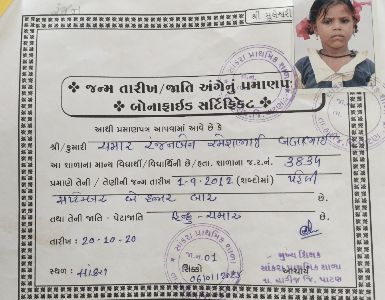 શ્રી મુલેશ્વરી
જન્મ તારીખ/જાતિ અંગેનું પ્રમાણપ
❖ બોનાફાઈડ સર્ટિફિકેટ ❖
આથી પ્રમાણપત્ર આપવામાં આવે છે કે
શ્રી/કુમારી ચમાર રંજનબેન રમેશભાઈ
આ શાળાના માન્ય વિદ્યાર્થી/વિદ્યાર્થિની છે/હતા. શાળાના જ.ર.નં. 3834
પ્રમાણે તેની / તેણીની જન્મ તારીખ 1-9-2012 (શબ્દોમાં) પહેલી
સપ્ટેમ્બર બે હજાર બાર છે.
તથા તેની જાતિ - પેટાજાતિ હિન્દુ-ચમાર છે.
તારીખ : 20-10-20
જા.ન.01
સિક્કો
મુખ્ય શિક્ષક
સાંકરા પ્રાથમિક શાળા
સ્થળ : સાંકરા
આચાર્ય